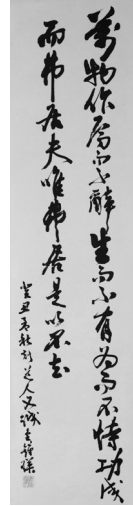 萬物作焉而不辭生而不有為而不恃功成
而弗居夫唯弗居是以不去
癸丑